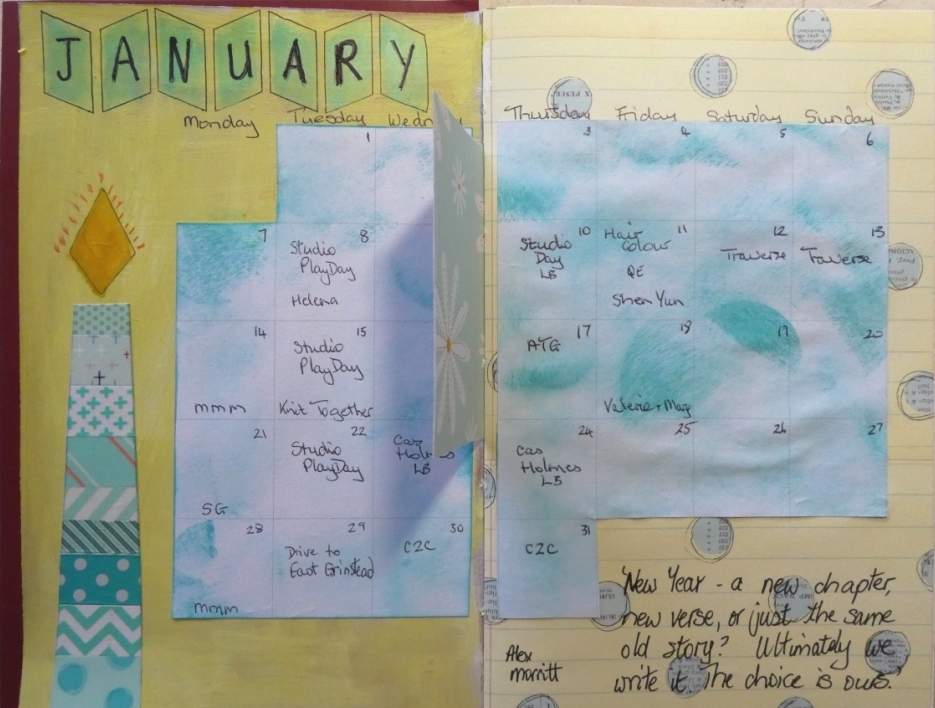 JANUARY
Monday Tuesday Wedn Thursday Friday Saturday Sunday
1 3 4 5 6
7 8 10 11 12 13
Studio
PlayDay
Helena
Studio
Day
LB
Hair
Colour
QE
Shen Yun
Traverse
Traverse
14 15 17 18 19 20
mmm
Studio
PlayDay
Knit Together
ATG
Valerie + Mary
21 22 24 25 26 27
SG
Studio
PlayDay
Cas
Holm s
LB
Cas
Holmes
LB
28 29 30 31
mmm
Drive to
East Grinstead
C2C
C2C
'New Year - a new chapter,
new verse, or just the same
old story? Ultimately we
write it. The choice is ours.'
Alex
morritt